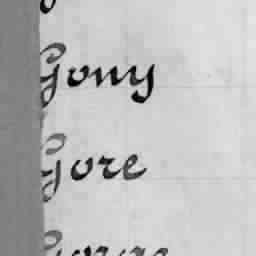 Gony
Gore